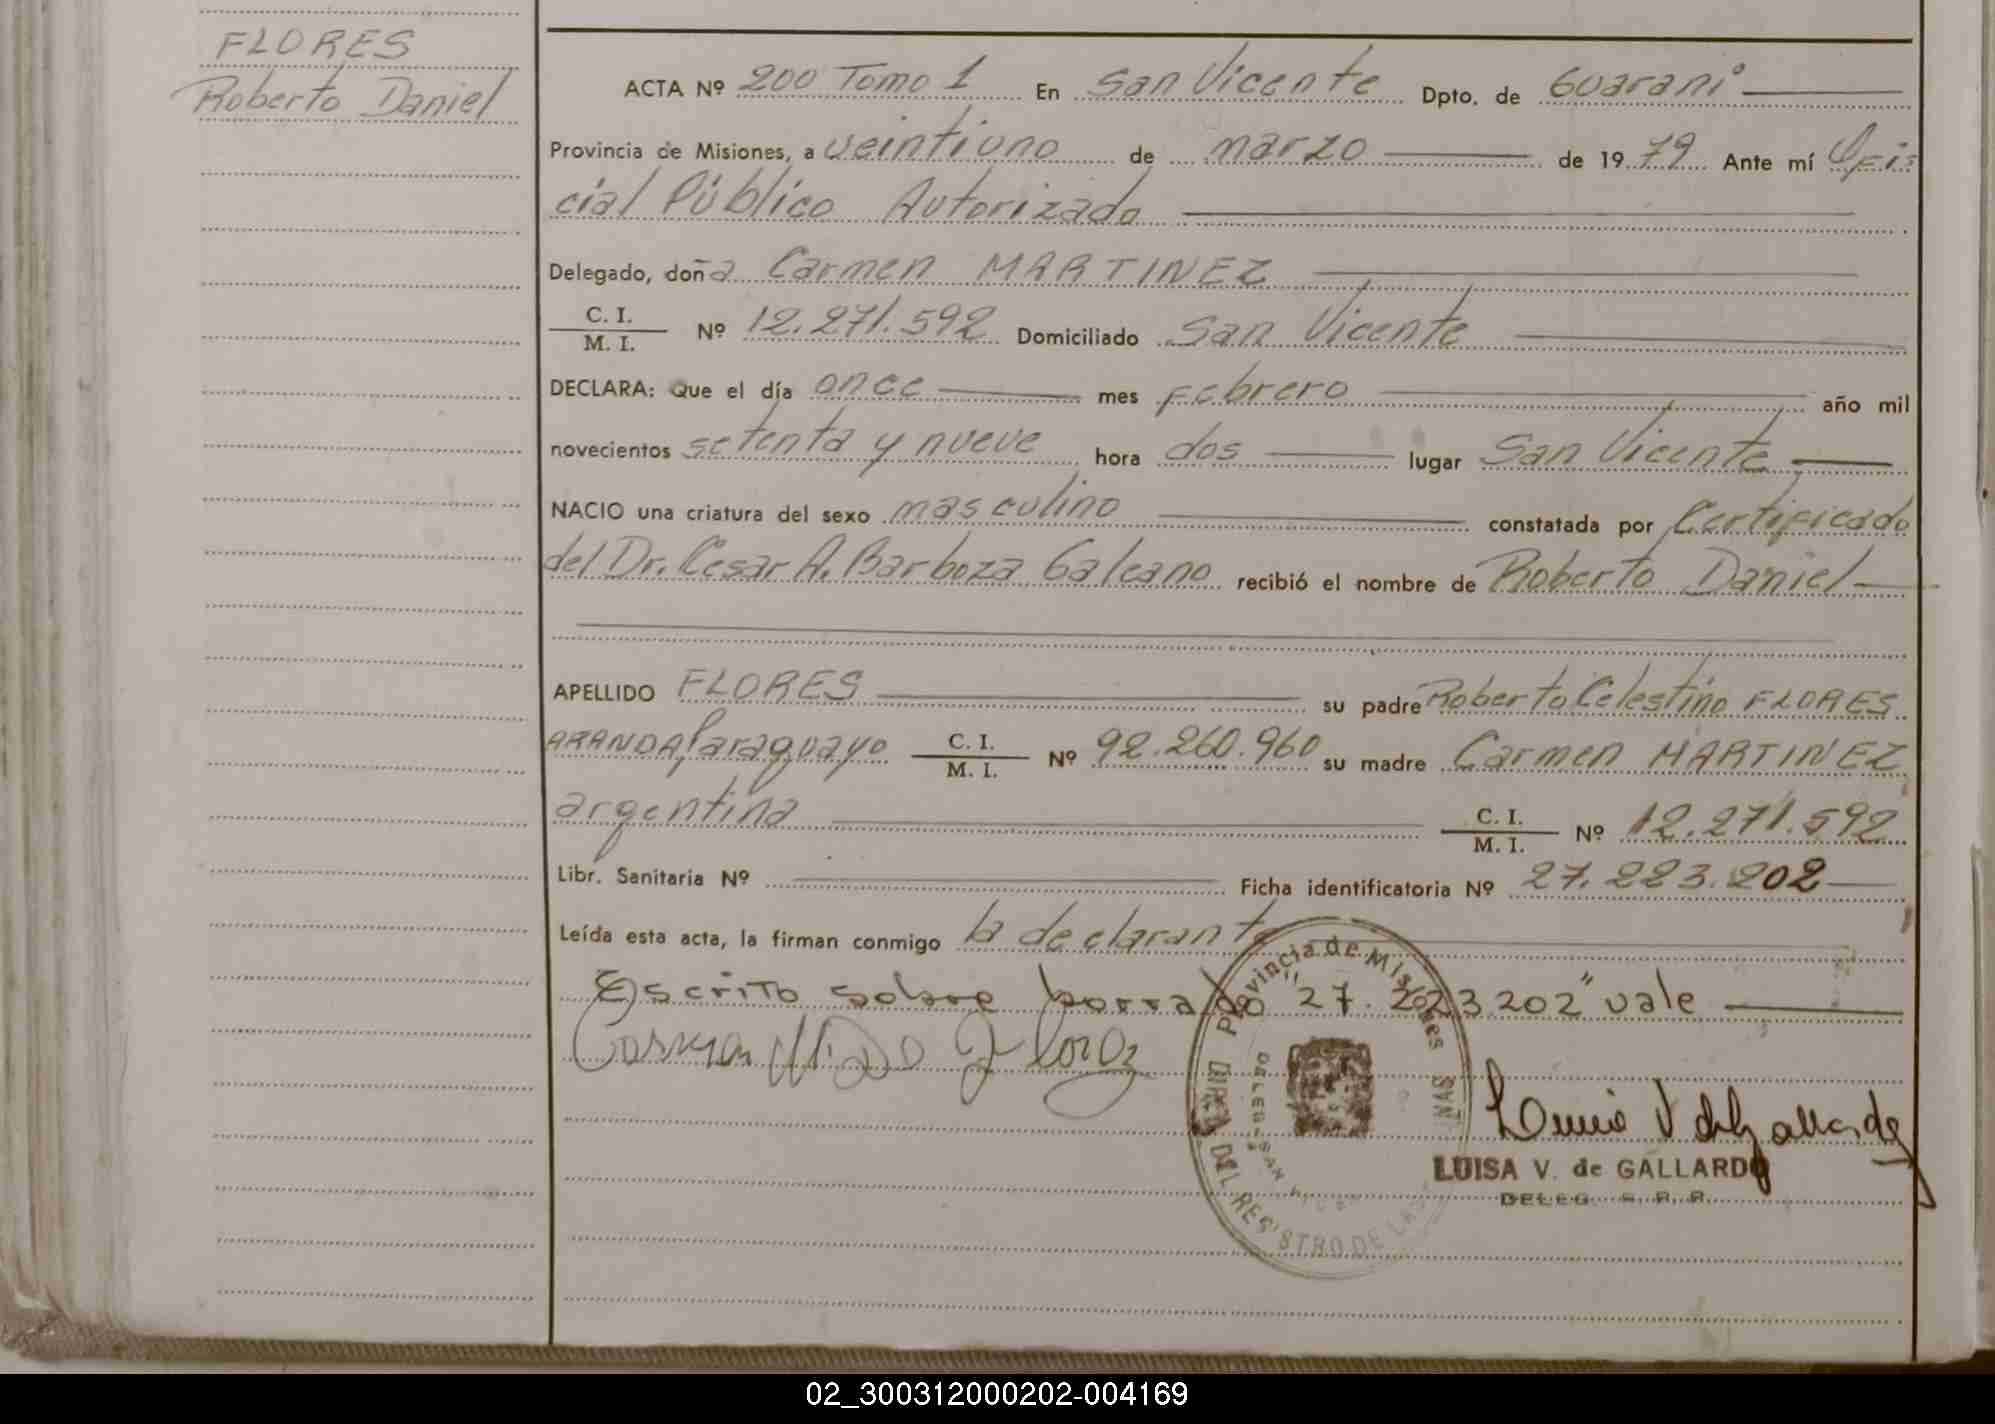 FLORES
Roberto Daniel
ACTA Nº 200 Tomo 1 En San Vicente Dpto. de Guaraní
Provincia de Misiones, a veintiuno de marzo de 1979 Ante mí Ofi-
cial Público Autorizado
Delegado, doña Carmen MARTINEZ
C. I.
M. I. Nº 12.271.592 Domiciliado San Vicente
DECLARA: Que el día once mes Febrero año mil
novecientos setenta y nueve hora dos lugar San Vicente
NACIO una criatura del sexo masculino constatada por Certificado
del Dr. Cesar A. Barboza Galeano recibió el nombre de Roberto Daniel
APELLIDO FLORES su padre Roberto Celestino FLORES
ARANDA Paraguayo C. I. M. I. Nº 92.260.960 su madre Carmen MARTINEZ
argentina C. I. M. I. Nº 12.271.592
Libr. Sanitaria Nº Ficha identificatoria Nº 27.223.202
Leída esta acta, la firman conmigo la declarante
Escrito sobre borrado "27.223.202" vale
Provincia de Misiones
DEL REGISTRO DE LAS
DELEG. SAN VICENTE
LUISA V. de GALLARDO
DELEG. S. R. P.
02_300312000202-004169